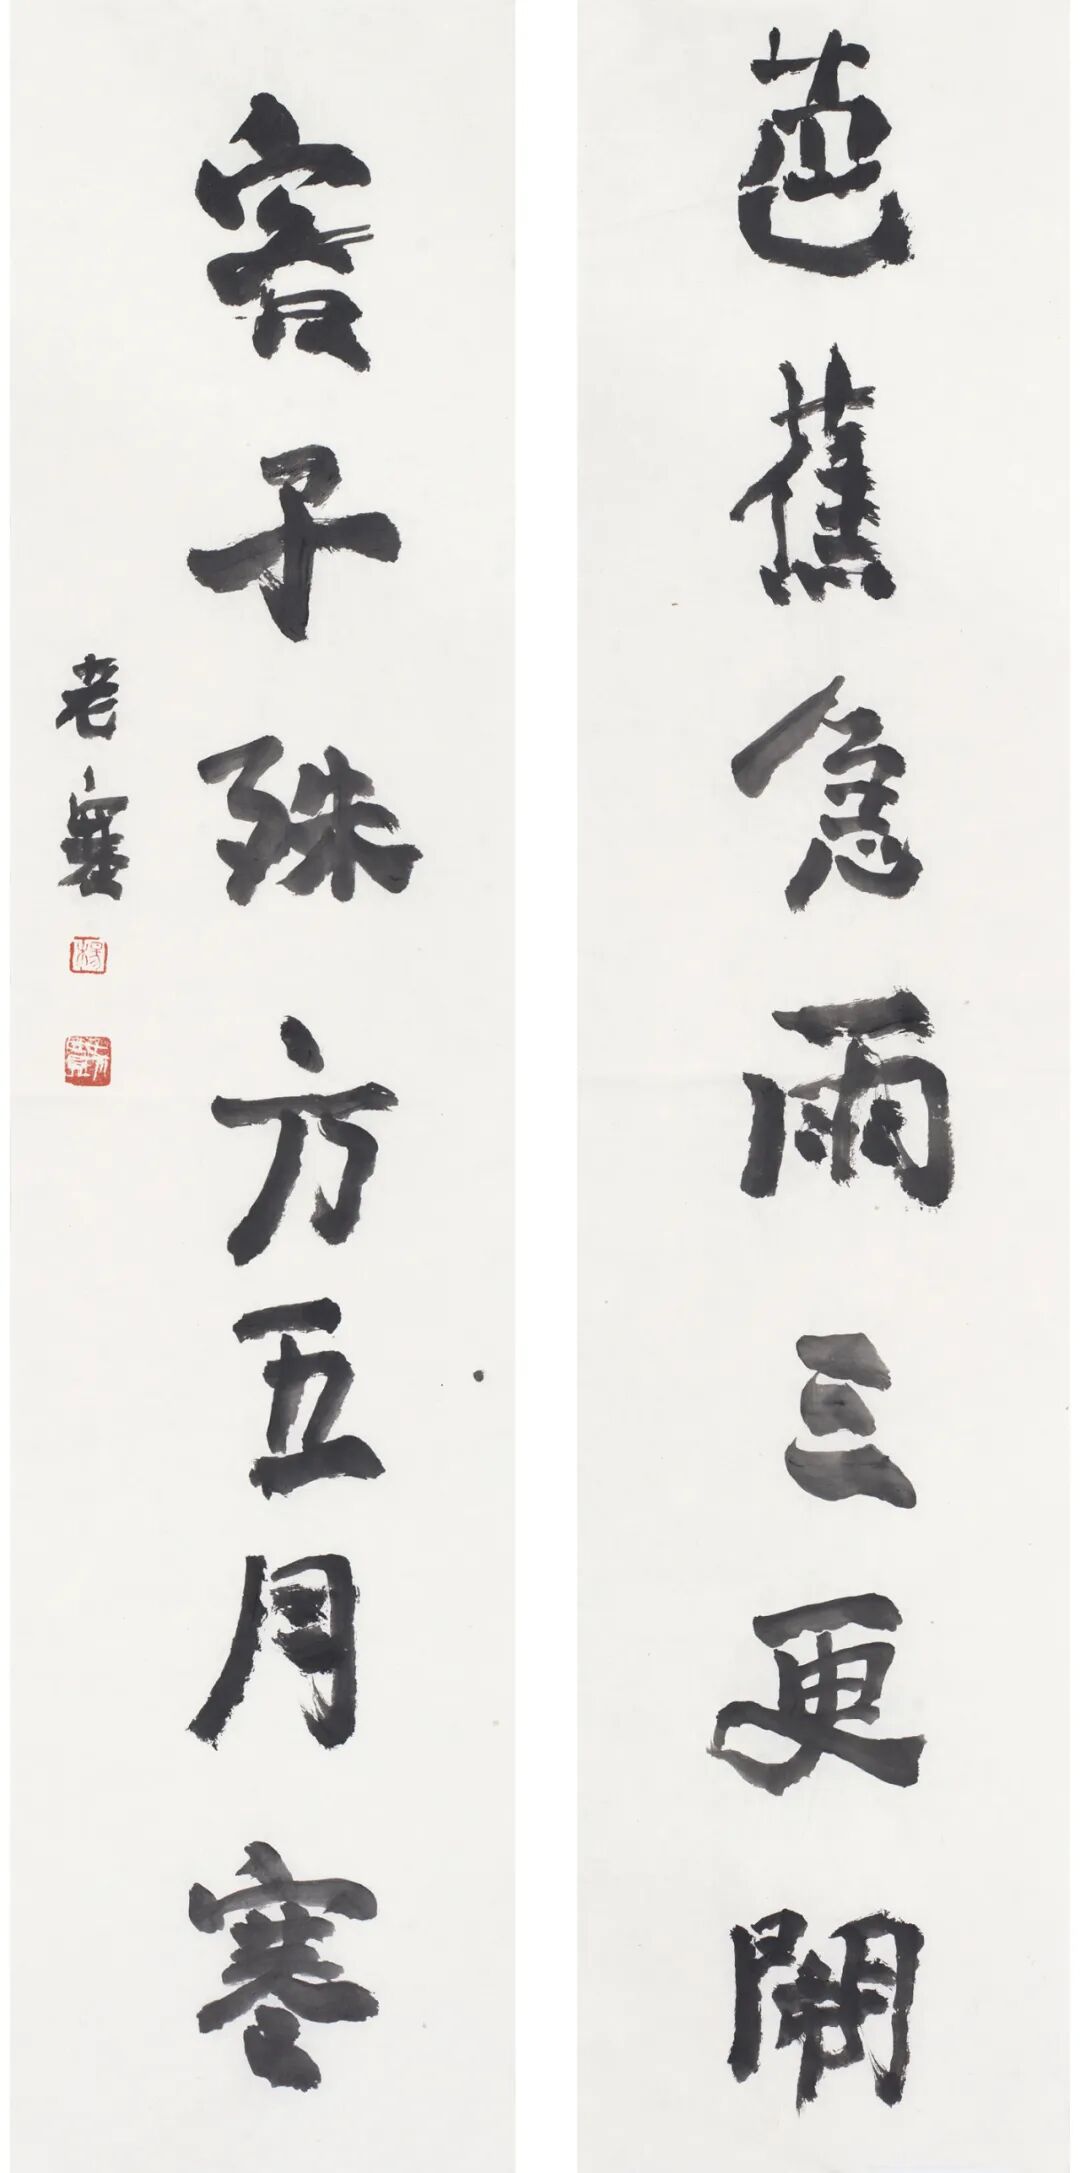 芭蕉急雨三更閙
客子殊方五月寒
老
楊